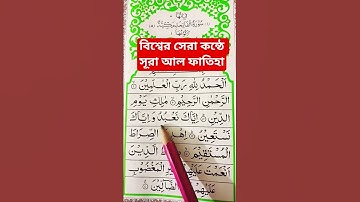 বিশ্বের সেরা কন্ঠে
সূরা আল ফাতিহা
اَلْحَمْدُ لِلّٰهِ رَبِّ الْعٰلَمِيْنَ
الرَّحْمٰنِ الرَّحِيْمِ مٰلِكِ يَوْمِ
الدِّيْنِ اِيَّاكَ نَعْبُدُ وَاِيَّاكَ
نَسْتَعِيْنُ اِهْدِ الصِّرَاطَ
الْمُسْتَقِيْمَ الَّذِيْنَ
اَنْعَمْتَ عَلَيْهِمْ غَيْرِ الْمَغْضُوْبِ
عَلَيْهِمْ الضَّآلِّيْنَ